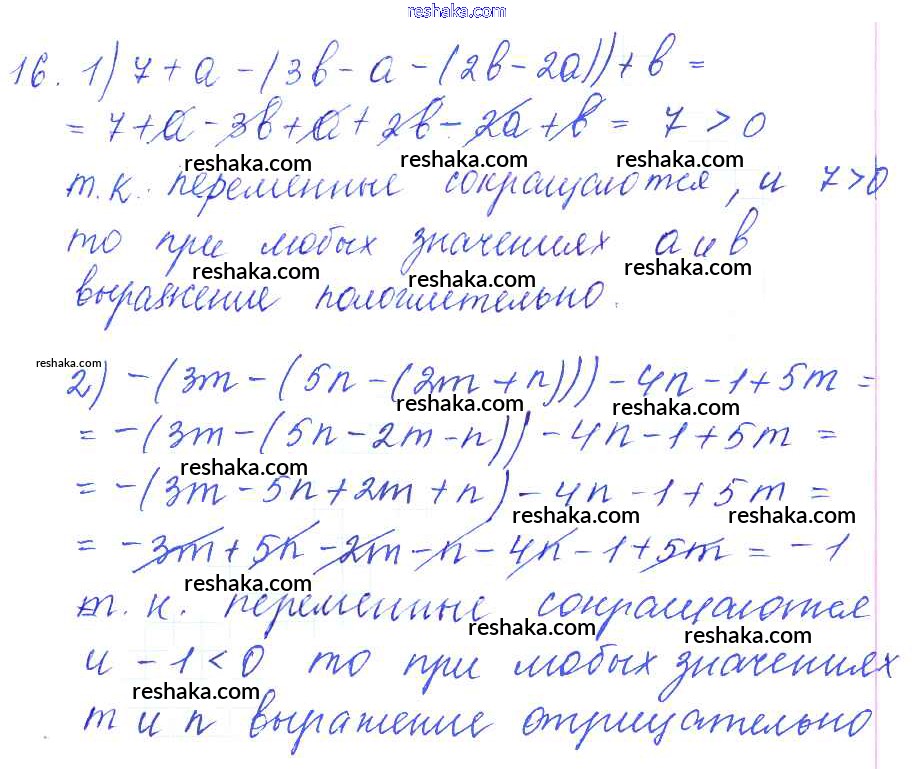 reshaka.com
16. 1) 7 + a - (3b - a - (2b - 2a)) + b =
= 7 + a - 3b + a + 2b - 2a + b = 7 > 0
reshaka.com reshaka.com reshaka.com
т.к. переменные сокращаются, и 7>0
то при любых значениях a и b
reshaka.com reshaka.com reshaka.com
выражение положительно.
reshaka.com
2) -(3m - (5n - (2m + n))) - 4n - 1 + 5m =
reshaka.com reshaka.com
= -(3m - (5n - 2m - n)) - 4n - 1 + 5m =
reshaka.com
= -(3m - 5n + 2m + n) - 4n - 1 + 5m =
reshaka.com reshaka.com
= - 3m + 5n - 2m - n - 4n - 1 + 5m = - 1
reshaka.com
т.к. переменные сокращаются
reshaka.com reshaka.com
и - 1 < 0 то при любых значениях
reshaka.com
m и n выражение отрицательно